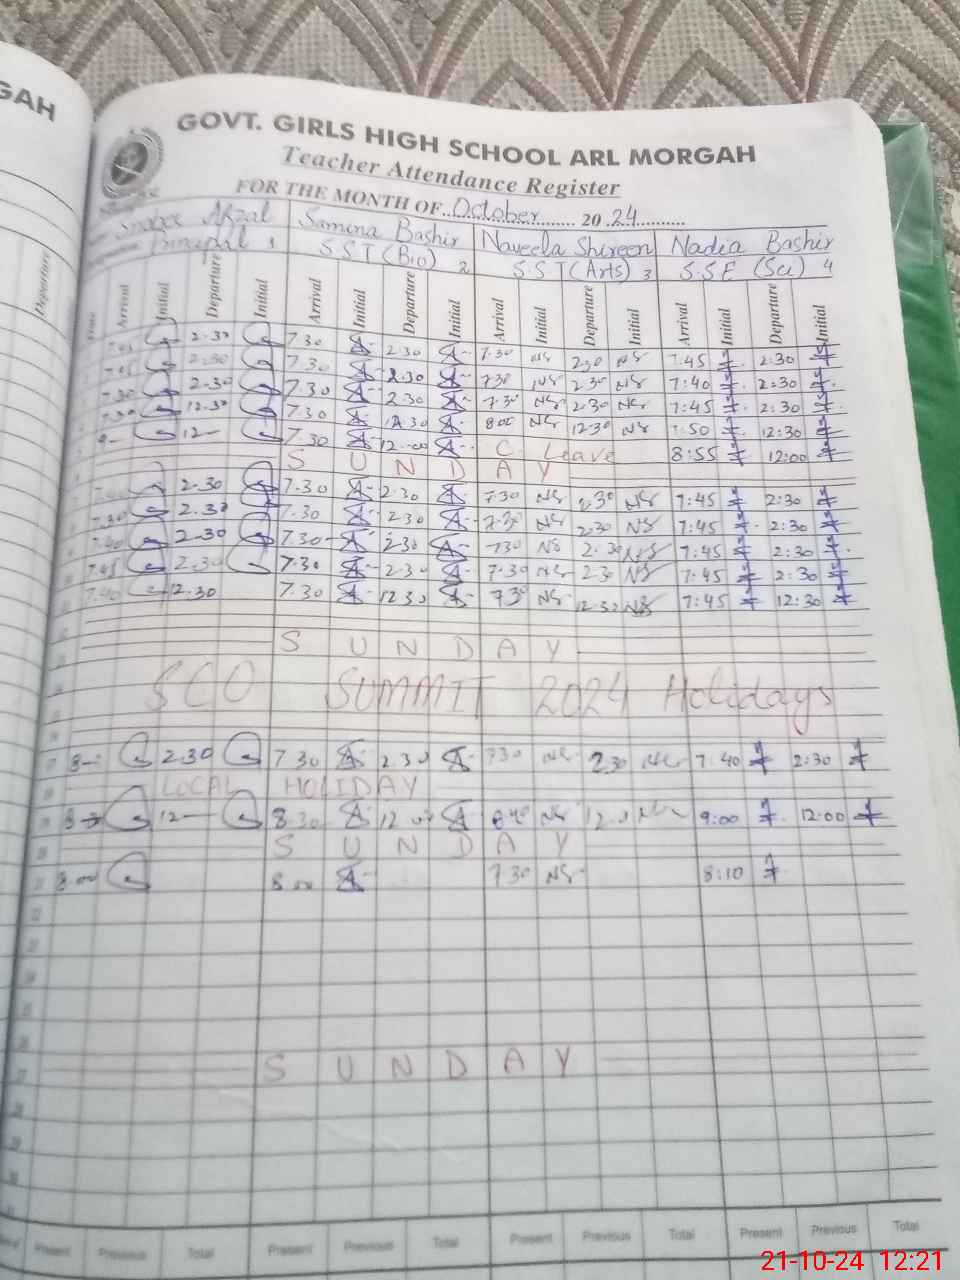 GAH
GOVT. GIRLS HIGH SCHOOL ARL MORGAH
Teacher Attendance Register
FOR THE MONTH OF October 2024
Afzal Samina Bashir Naveela Shireen Nadia Bashir
Principal 1 S.S.T (Bio) 2 S.S.T (Arts) 3 S.S.E (Sci) 4
Departure Arrival Initial Departure Initial Arrival Initial Departure Initial Arrival Initial Departure Initial Arrival Initial Departure Initial
7.45 2.30 7.30 2.30 7.30 NS 2.30 NS 7.45 2:30
7.45 2.30 7.30 2.30 7.30 NS 2.30 NS 7:40 2:30
7.30 2.30 7.30 2.30 7.30 NS 2.30 NS 7:45 2:30
7.30 12.30 7.30 12.30 8.00 NS 12.30 NS 7:50 12:30
12 7.30 12.00 C. Leave 8:55 12:00
S U N D A Y
7.40 2.30 7.30 2.30 7.30 NS 2.30 NS 7:45 2:30
7.30 2.30 7.30 2.30 7.30 NS 2.30 NS 7:45 2:30
7.40 2.30 7.30 2.30 7.30 NS 2.30 NS 7:45 2:30
7.45 2.30 7.30 2.30 7.30 NS 2.30 NS 7:45 2:30
7.40 12.30 7.30 12.30 7.30 NS 12.30 NS 7:45 12:30
S U N D A Y
SCO SUMMIT 2024 Holidays
8 2.30 7.30 2.30 7.30 NS 2.30 NS 7:40 2:30
LOCAL HOLIDAY
8 12 8.30 12.00 8.40 NS 12.0 NS 9:00 12:00
S U N D A Y
8.00 8.00 7.30 NS 8:10
S U N D A Y
Present Present Total Present Previous Total Present Previous Total Present Previous Total
21-10-24 12:21